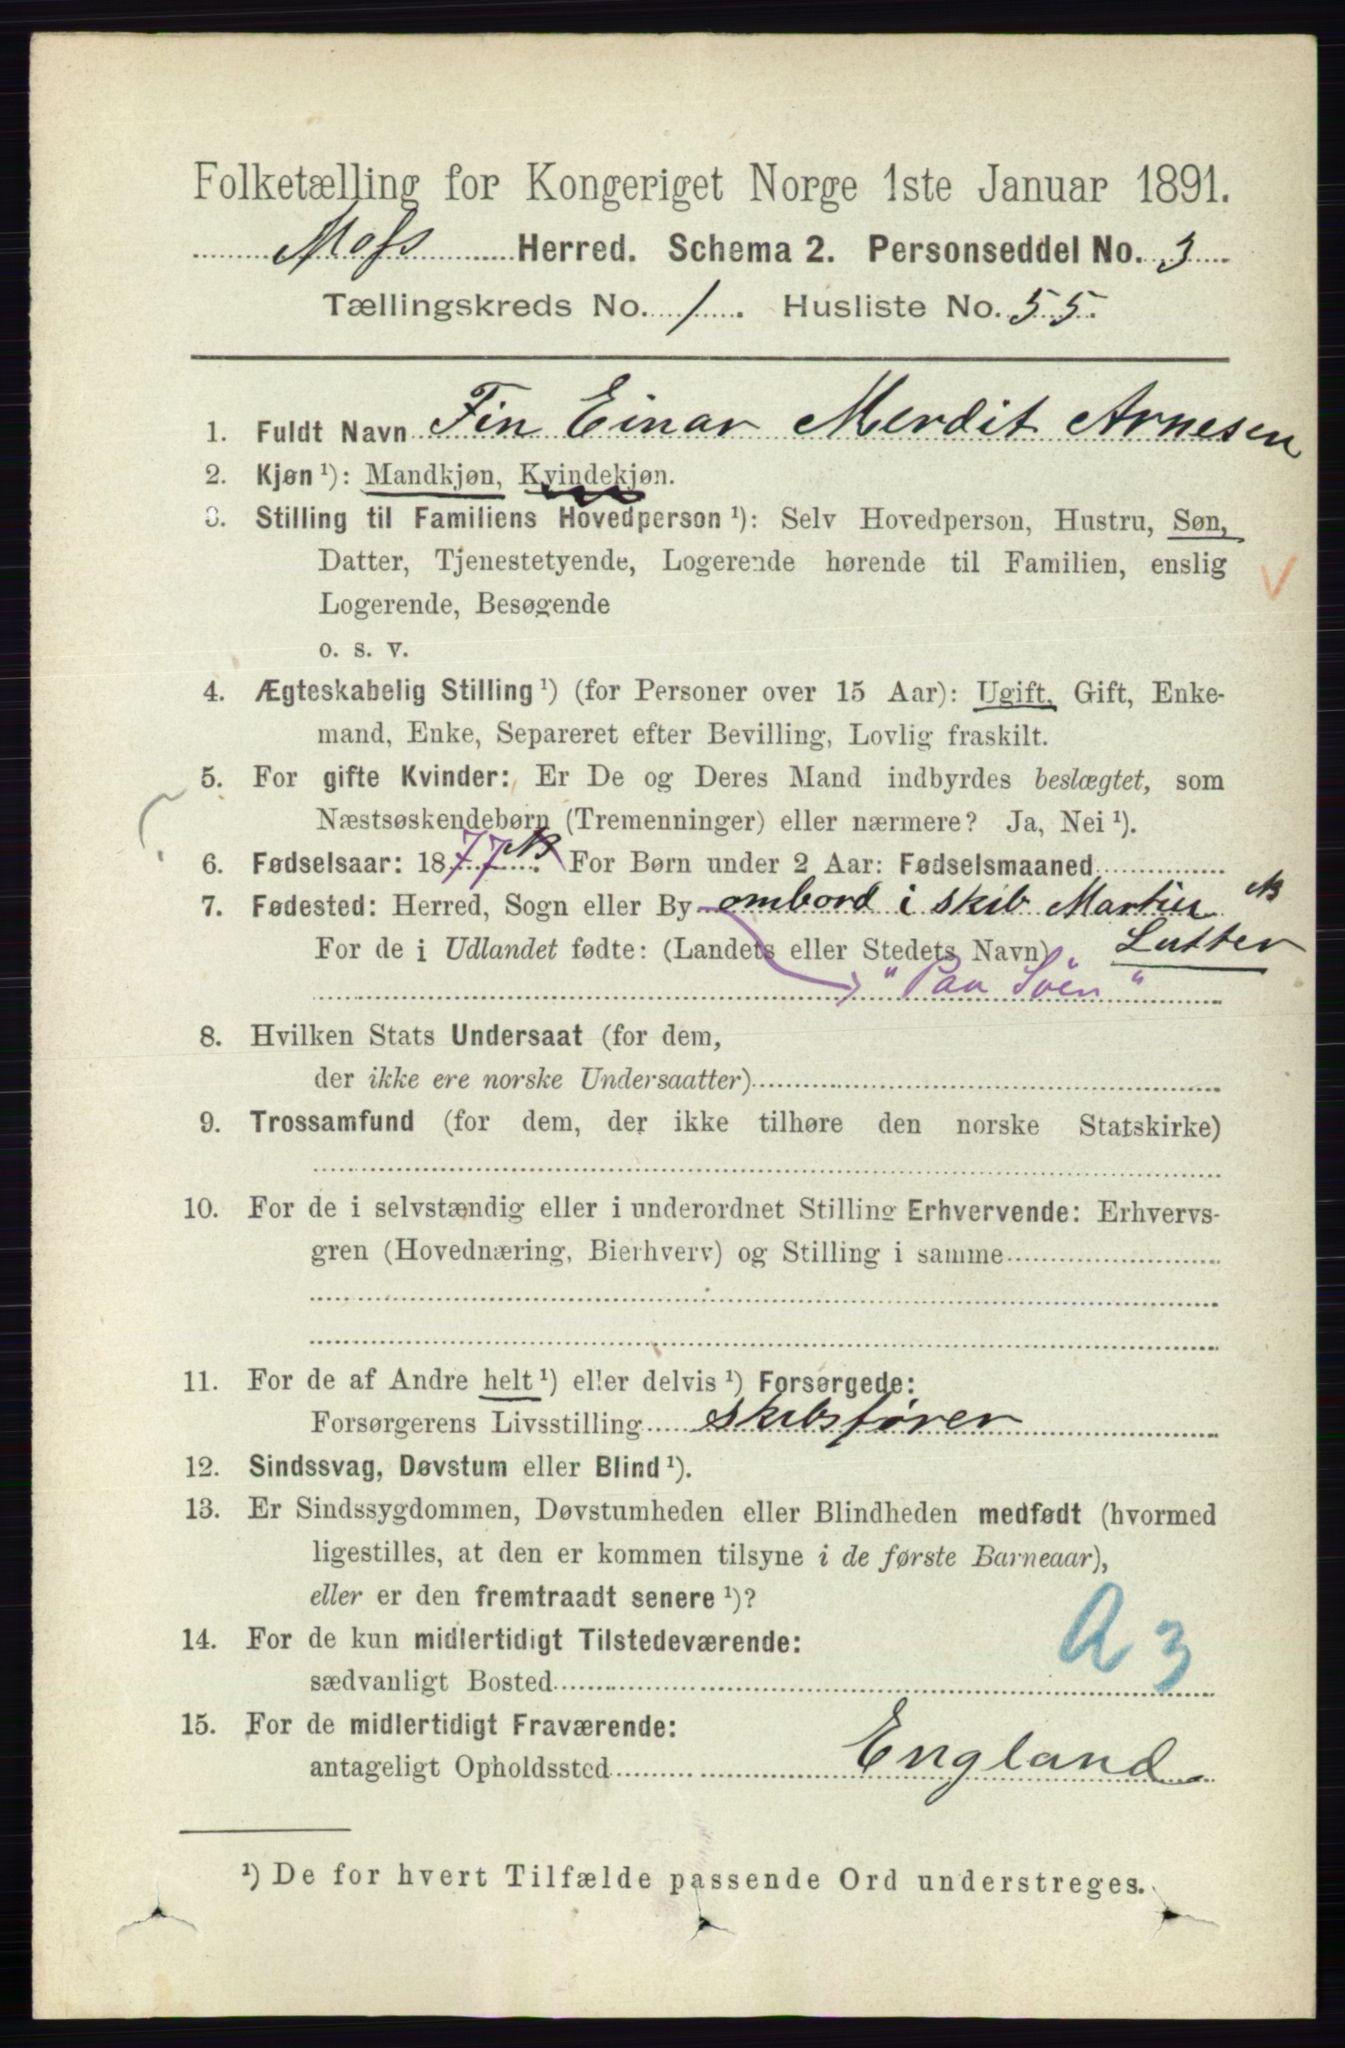 Folketælling for Kongeriget Norge 1ste Januar 1891.
Moss Herred. Schema 2. Personseddel No. 3
Tællingskreds No. 1. Husliste No. 55.
1. Fuldt Navn Fin Einar Merdit Arnesen
2. Kjøn ¹): Mandkjøn, Kvindekjøn.
3. Stilling til Familiens Hovedperson ¹): Selv Hovedperson, Hustru, Søn,
Datter, Tjenestetyende, Logerende hørende til Familien, enslig
Logerende, Besøgende
o. s. v.
4. Ægteskabelig Stilling ¹) (for Personer over 15 Aar): Ugift, Gift, Enke-
mand, Enke, Separeret efter Bevilling, Lovlig fraskilt.
5. For gifte Kvinder: Er De og Deres Mand indbyrdes beslægtet, som
Næstsøskendebørn (Tremenninger) eller nærmere? Ja, Nei ¹).
6. Fødselsaar: 1877. For Børn under 2 Aar: Fødselsmaaned
7. Fødested: Herred, Sogn eller By ombord i skib Martin
For de i Udlandet fødte: (Landets eller Stedets Navn) Lutter
"Paa Søen"
8. Hvilken Stats Undersaat (for dem,
der ikke ere norske Undersaatter)
9. Trossamfund (for dem, der ikke tilhøre den norske Statskirke)
10. For de i selvstændig eller i underordnet Stilling Erhvervende: Erhvervs-
gren (Hovednæring, Bierhverv) og Stilling i samme
11. For de af Andre helt ¹) eller delvis ¹) Forsørgede:
Forsørgerens Livsstilling skibsfører
12. Sindssvag, Døvstum eller Blind ¹).
13. Er Sindssygdommen, Døvstumheden eller Blindheden medfødt (hvormed
ligestilles, at den er kommen tilsyne i de første Barneaar),
eller er den fremtraadt senere ¹)?
14. For de kun midlertidigt Tilstedeværende:
sædvanligt Bosted
A 3
15. For de midlertidigt Fraværende:
antageligt Opholdssted England
¹) De for hvert Tilfælde passende Ord understreges.